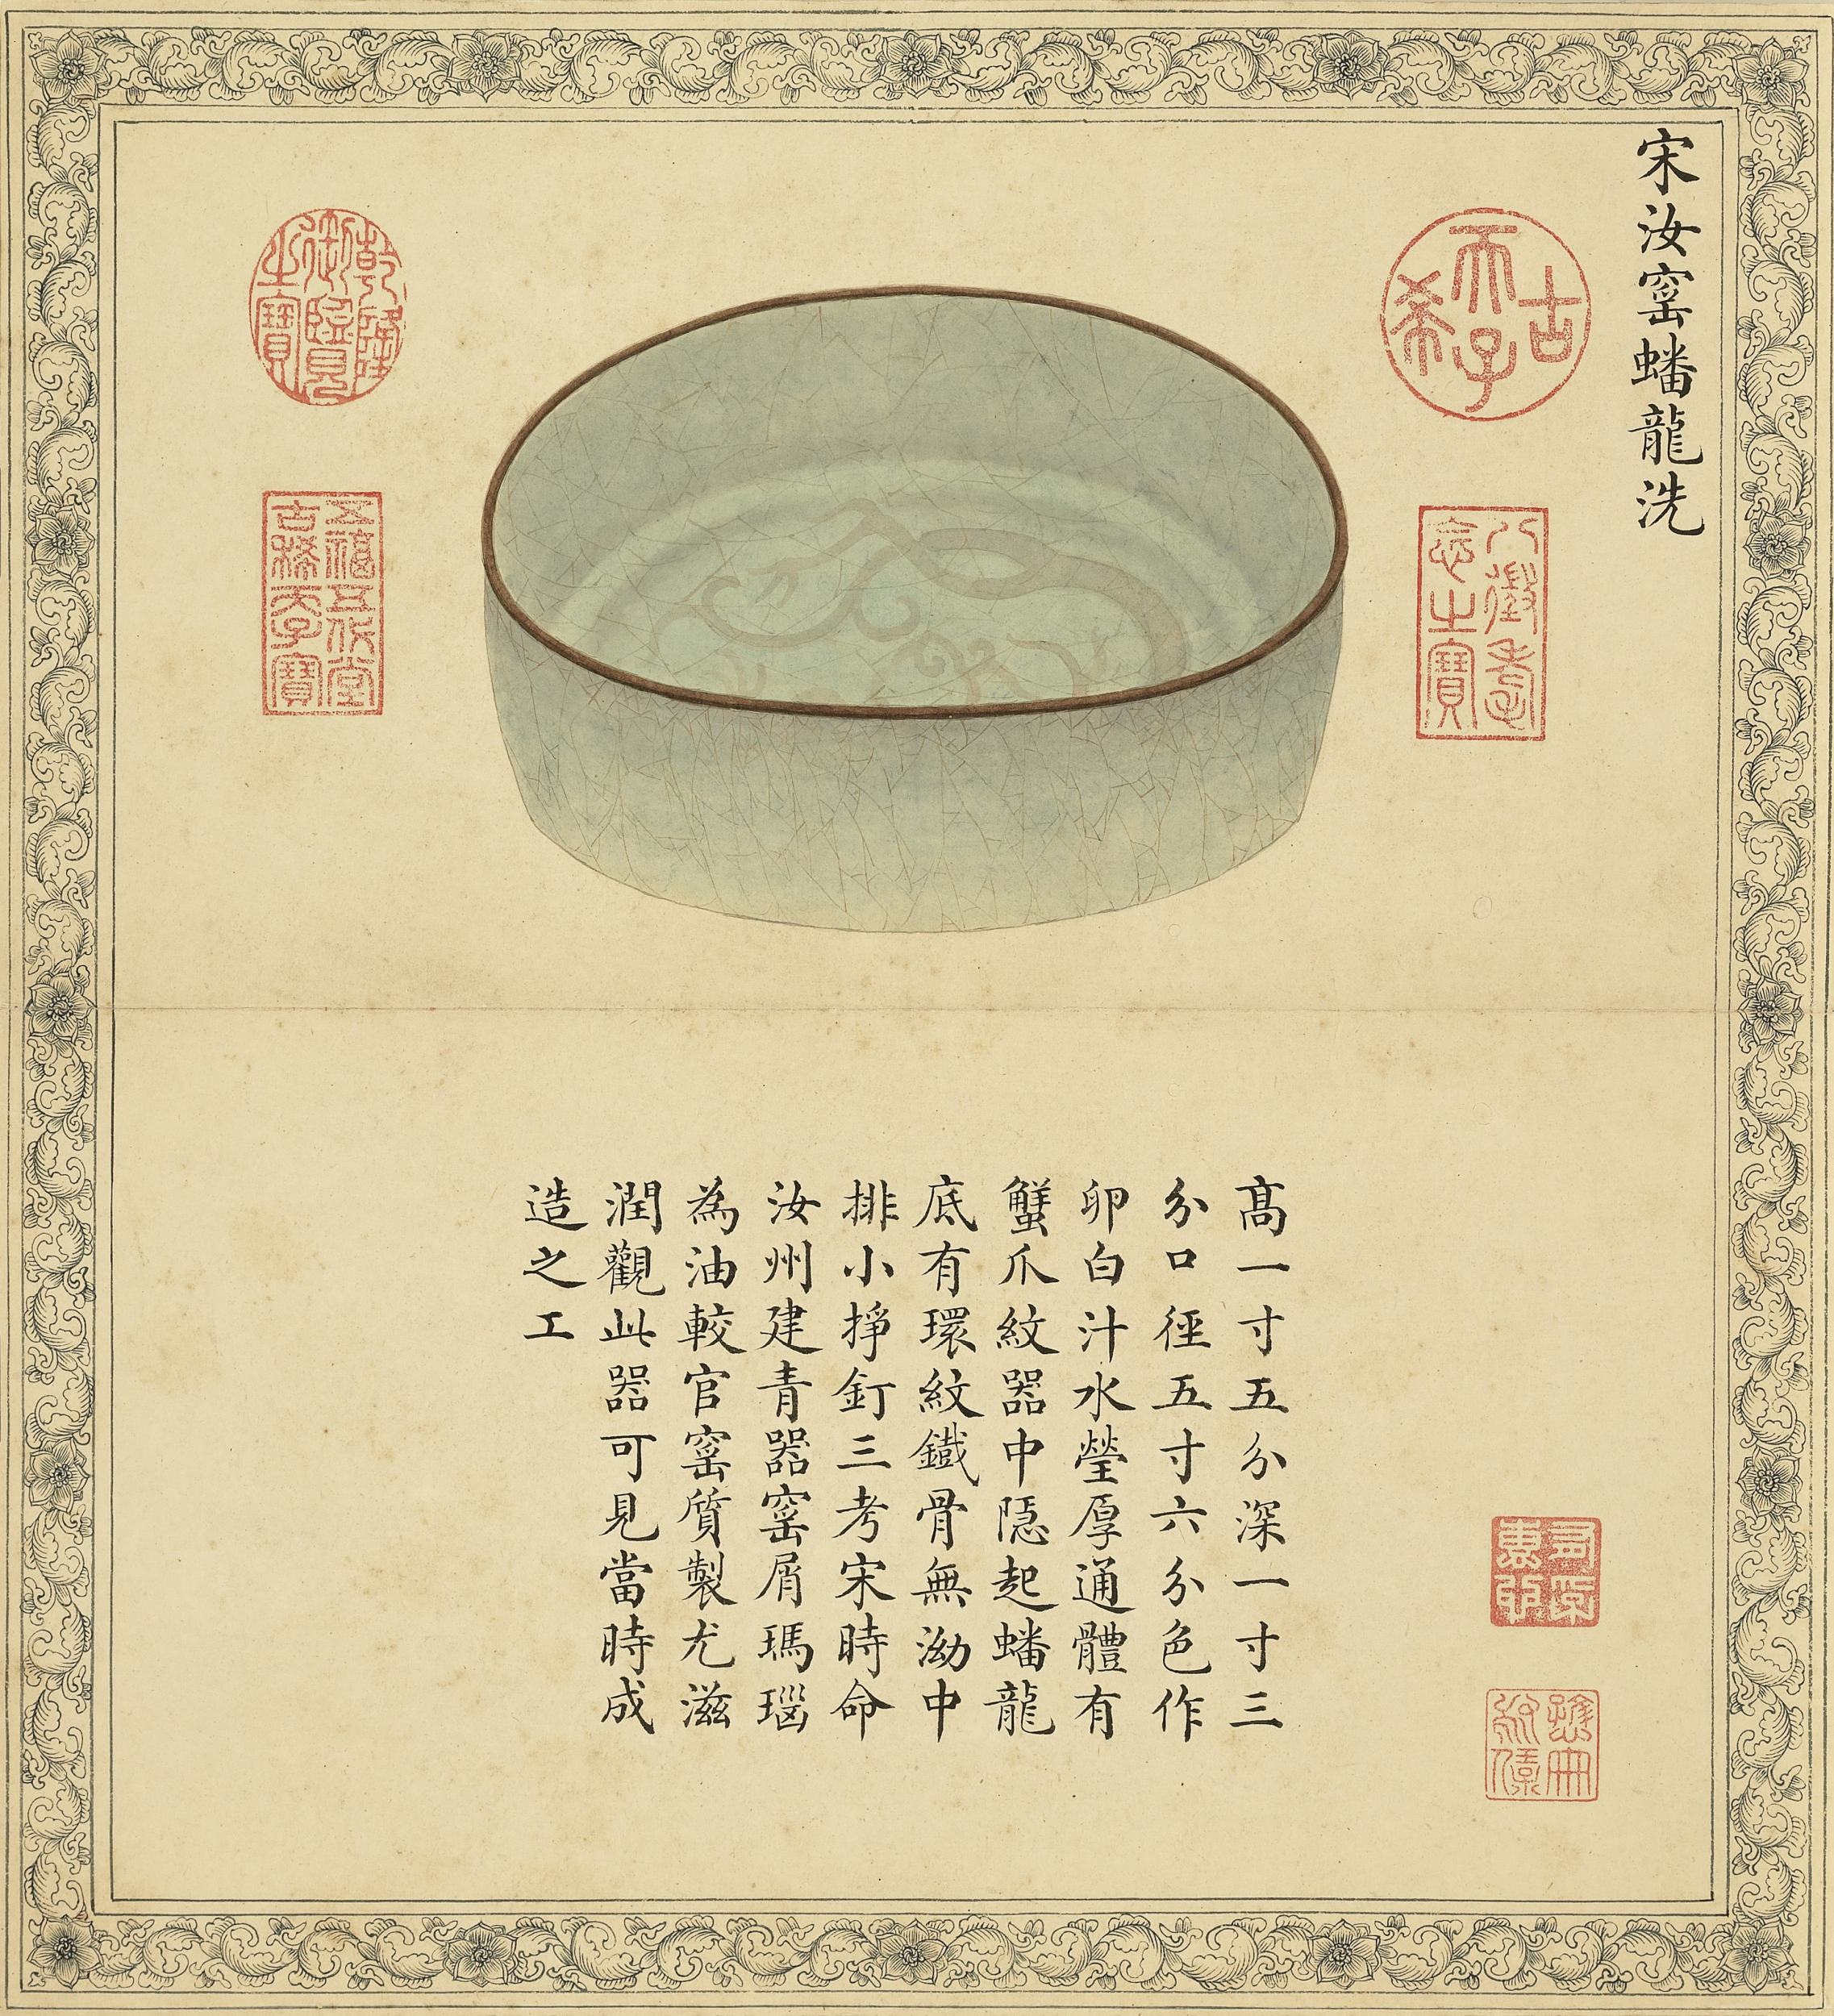 宋汝窰蟠龍洗
古稀天子
八徵耄念之寶
乾隆御覽之寶
五福五代堂古稀天子寶
高一寸五分深一寸三
分口徑五寸六分色作
卵白汁水瑩厚通體有
蟹爪紋器中隱起蟠龍
底有環紋鐵骨無泑中
排小掙釘三考宋時命
汝州建青器窰屑瑪瑙
為油較官窰質製尤滋
潤觀此器可見當時成
造之工